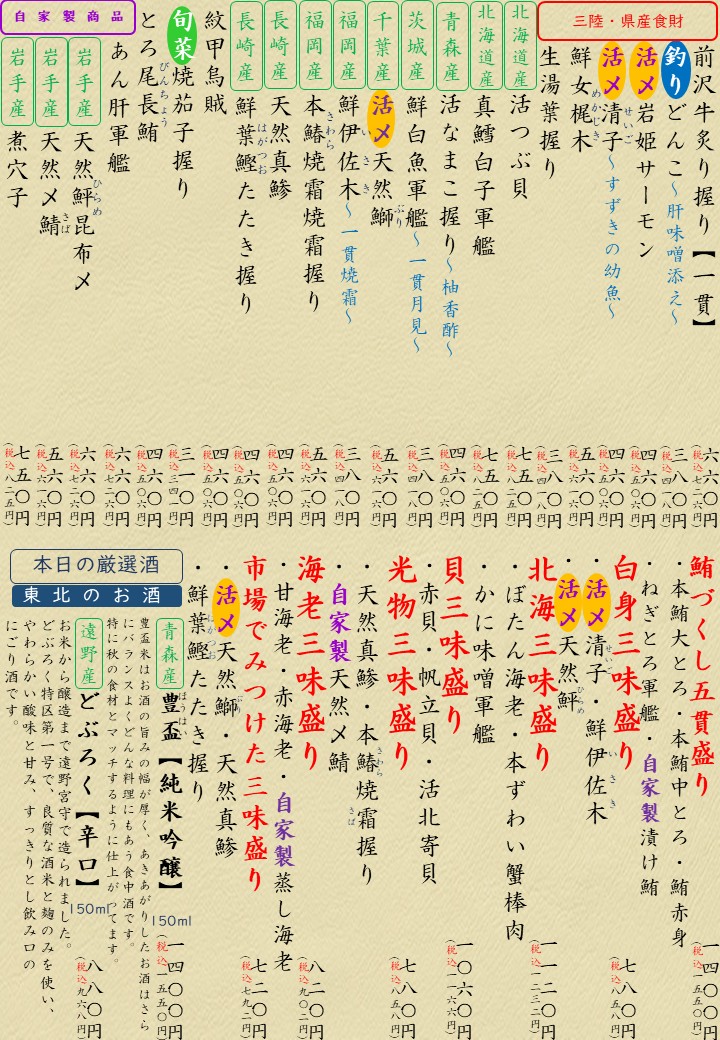 三陸・県産食財
前沢牛炙り握り【一貫】 六六〇円
(税込七二六円)
釣り どんこ～肝味噌添え～ 三八〇円
(税込四一八円)
活〆 岩姫サーモン 四六〇円
(税込五〇六円)
せいご
活〆 清子～すずきの幼魚～ 四六〇円
(税込五〇六円)
めかじき
鮮女梶木 五六〇円
(税込六一六円)
生湯葉握り 三八〇円
(税込四一八円)
北海道産 活つぶ貝 七五〇円
(税込八二五円)
北海道産 真鱈白子軍艦 七五〇円
(税込八二五円)
青森産 活なまこ握り～柚香酢～ 四六〇円
(税込五〇六円)
茨城産 鮮白魚軍艦～一貫月見～ 三八〇円
(税込四一八円)
ぶり
千葉産 活〆 天然鰤 五六〇円
(税込六一六円)
いさき
福岡産 鮮伊佐木～一貫焼霜～ 三八〇円
(税込四一八円)
さわら
福岡産 本鰆焼霜焼霜握り 五六〇円
(税込六一六円)
長崎産 天然真鯵 四六〇円
(税込五〇六円)
はがつお
長崎産 鮮葉鰹たたき握り 四六〇円
(税込五〇六円)
紋甲烏賊 四六〇円
(税込五〇六円)
旬菜 焼茄子握り 三一〇円
(税込三四一円)
びんちょう
とろ尾長鮪 四六〇円
(税込五〇六円)
あん肝軍艦 六六〇円
(税込七二六円)
自家製商品
ひらめ
岩手産 天然鮃昆布〆 六六〇円
(税込七二六円)
さば
岩手産 天然〆鯖 五六〇円
(税込六一六円)
岩手産 煮穴子 七五〇円
(税込八二五円)
鮪づくし五貫盛り 一四〇〇円
(税込一五五〇円)
・本鮪大とろ・本鮪中とろ・鮪赤身
・ねぎとろ軍艦・自家製漬け鮪
白身三味盛り 七八〇円
(税込八五八円)
せいご いさき
・活〆 清子・鮮伊佐木
ひらめ
・活〆 天然鮃
北海三味盛り 一一二〇円
(税込一二三二円)
・ぼたん海老・本ずわい蟹棒肉
・かに味噌軍艦
貝三味盛り 一〇六〇円
(税込一一六六円)
・赤貝・帆立貝・活北寄貝
光物三味盛り 七八〇円
(税込八五八円)
さわら
・天然真鯵・本鰆焼霜握り
さば
・自家製天然〆鯖
海老三味盛り 八二〇円
(税込九〇二円)
・甘海老・赤海老・自家製蒸し海老
市場でみつけた三味盛り 七二〇円
(税込七九二円)
ぶり
・活〆 天然鰤・天然真鯵
はがつお
・鮮葉鰹たたき握り
本日の厳選酒
東北のお酒
ほうはい
青森産 豊盃【純米吟醸】 150ml 一四〇〇円
(税込一五五〇円)
豊盃米はお酒の旨みの幅が厚く、あきあがりしたお酒はさら
にバランスよくどんな料理にもあう食中酒です。
特に秋の食材とマッチするように仕上がってます。
遠野産 どぶろく【辛口】 150ml 八八〇円
(税込九六八円)
お米から醸造まで遠野宮守で造られました。
どぶろく特区第一号で、良質な酒米と麹のみを使い、
やわらかい酸味と甘み、すっきりとし飲み口の
にごり酒です。